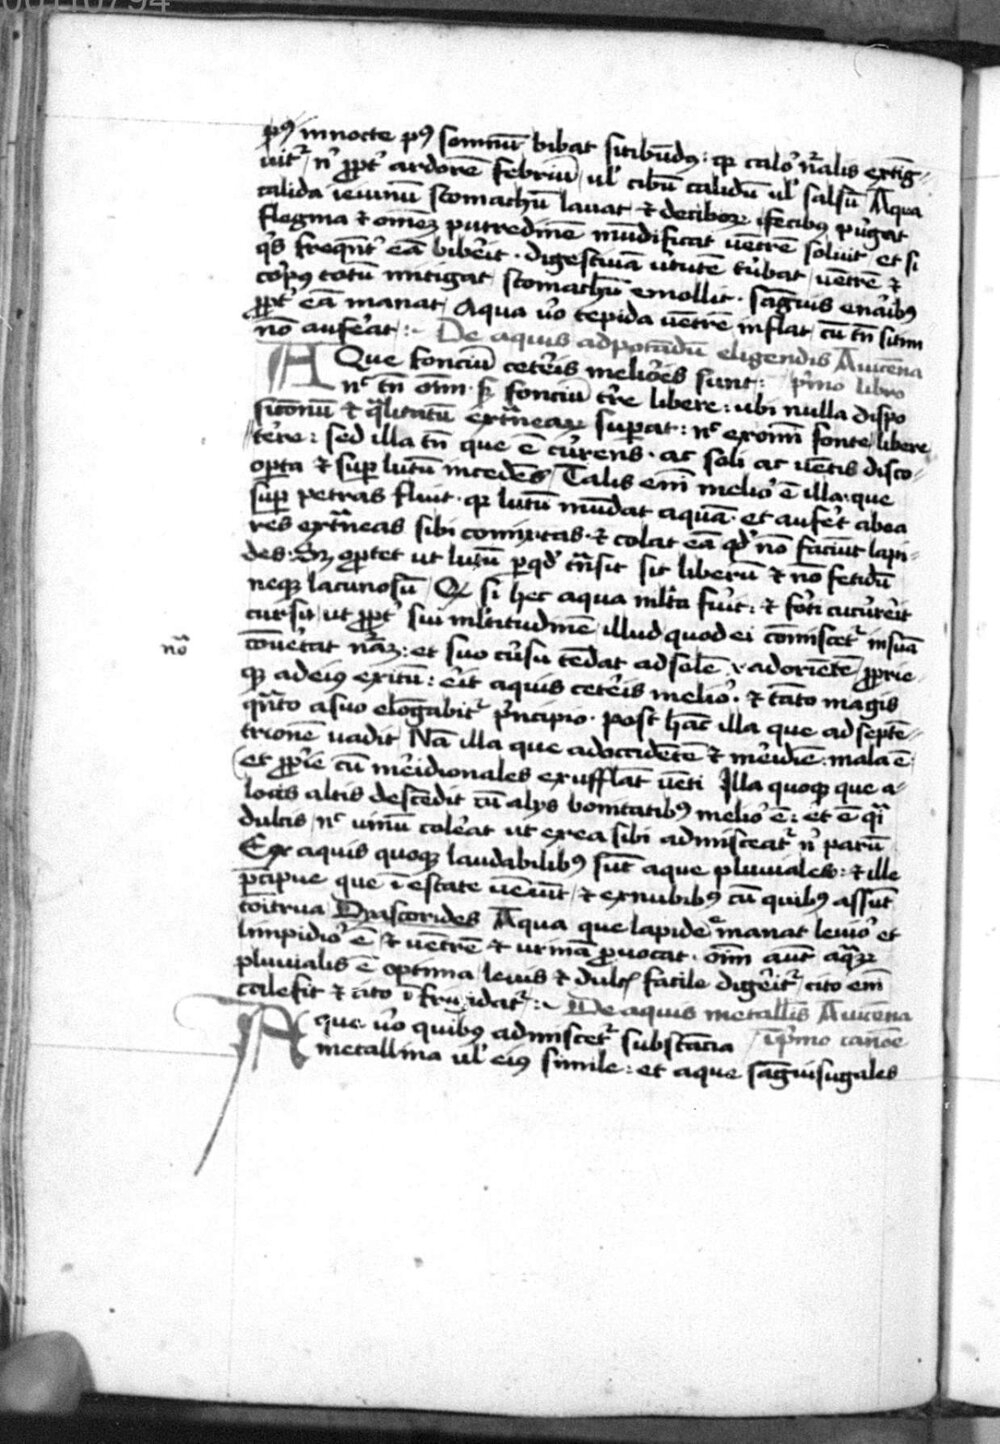 pꝰ in nocte pꝰ somnū bibat sitibūdꝰ : qꝛ calo᷒ nr̄alis extīg⸗
uit᷒ / n᷒ ꝓpt᷒ ardorē febriū / ul᷒ cibū calidū ul᷒ salsū Aqua
calida ieiunū stomachū lauat / ⁊ decibor̄ / fecibꝰ pu᷒gat
flegma ⁊ om̄eꝫ putredinē mūdificat uētrē soluit / et si
q᷒s freq̄nt᷒ eā bibe᷒it · digestiuā u᷒tutē tu᷒bat / uētrē ⁊
co᷒pꝰ totū mitigat / stomachū emollit · sāguis enaribꝰ
ꝓpt᷒ eā manat / Aqua u᷒o tepida uētrē inflat / cū tn̄ sitim
nō aufe᷒at :~ De aquis ad potādū eligendis Auicēna
AQue fonciū cete᷒is melio᷒es sunt : p᷒mo libro
n᷒c tn̄ om̄i · sꝫ fonciū tr̄e libere : ubi nulla dispo
sitōnū ⁊ q̄litatū extr̄near̄ supat : n᷒c ex om̄i fonte libere
te᷒re : sed illa tn̄ que ē cu᷒rens · ac soli ac uētis disco⸗
opta ⁊ sup lutū incedēs / Talis em̄ melio᷒ ē illa · que
sup petras fluit · qꝛ lutū mūdat aquā · et aufe᷒t ab ea
res extr̄neas sibi comixtas · ⁊ colat eā qd᷒ nō faciūt lapi⸗
des · Sꝫ oportet ut lutū ꝑ qd᷒ tn̄sit sit liberū ⁊ nō fetidū
neqꝫ lacunosū / Qꝫ si hec aqua ml̄ta fu᷒it : ⁊ fo᷒ti cucu᷒re᷒it
cursu / ut ꝓpt᷒ sui ml̄titudinē / illud quod ei cōmiscet᷒ in suā
nō
cōue᷒tat nr̄aꝫ : et suo cu᷒su tēdat ad solē ⁊ ad oriētē / ꝓprie
qꝫ ad eiꝰ exitū : e᷒it aquis cete᷒is melio᷒ · ⁊ tāto magis
qn̄to a suo elōgabit᷒ p᷒ncipio · post hāc illa que ad septē⸗
trionē uadit / Nā illa que ad occidētē ⁊ me᷒idiē : mala ē
et ꝓp᷒ie cū me᷒idionales exufflāt uēti Illa quoqꝫ que a⸗
locis altis descēdit cū alijs bonitatibꝰ melio᷒ ē : et ē q᷒i
dulcis / n᷒c uinū tole᷒at ut ex ea sibi admisceat᷒ n᷒ parū
Ex aquis quoqꝫ laudabilibꝰ sūt aque pluuiales : ⁊ ille
p̄cipue que ī estate ueniūt / ⁊ ex nubibꝰ cū quibꝰ assūt
tōitrua Dyascorides Aqua que lapide᷒ manat leuio᷒ et
limpidio᷒ ē / ⁊ uētrē ⁊ urinā ꝓuocat · om̄i aūt aq̄r̄
pluuialis ē optima / leuis ⁊ dulcꝭ facile dige᷒it᷒ / cito em̄
calefit ⁊ cito īfrigidat᷒ :~ De aquis metallis Auicēna
AQue u᷒o quibꝰ admiscet᷒ substācia īp᷒mo canōe
metallina ul᷒ eiꝰ simile : et aque sāguisugales